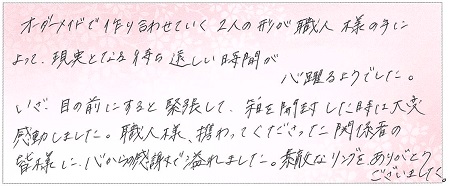 オーダーメイドで作り合わせていく 2人の形が職人様の手に
よって、現実となる待ち遠しい時間が
心躍るようでした。
いざ、目の前にすると緊張して、箱を開封した時は大変
感動しました。職人様、携わってくださった関係者の
皆様に、心からの感謝で溢れました。素敵なリングをありがとう
ございました。